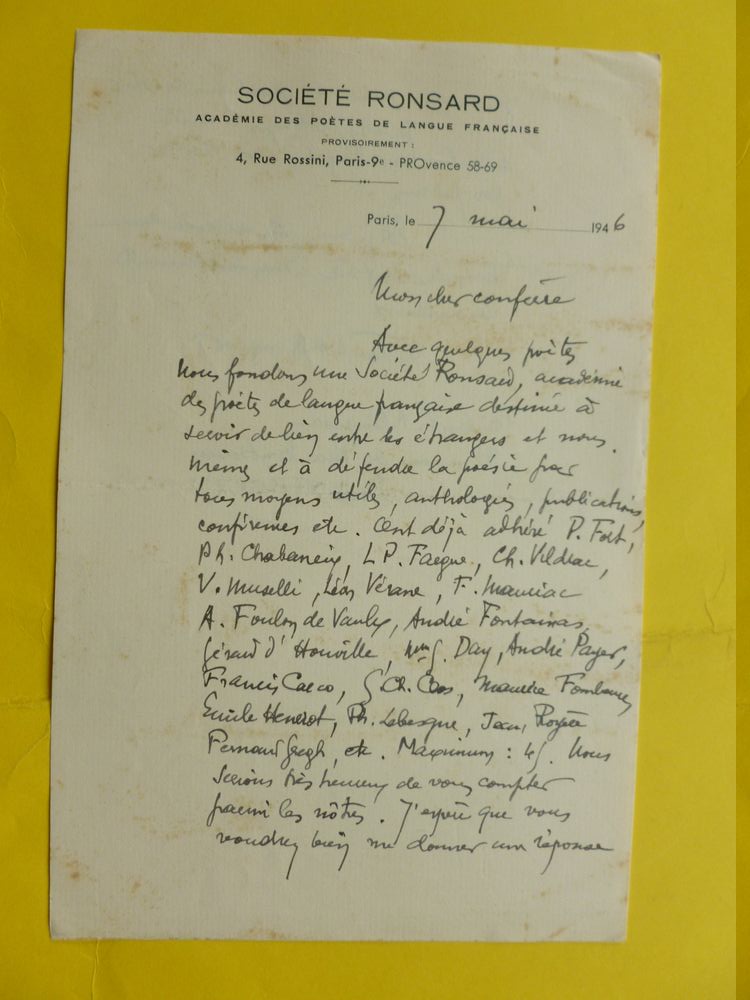 SOCIÉTÉ RONSARD
ACADÉMIE DES POÈTES DE LANGUE FRANÇAISE
PROVISOIREMENT :
4, Rue Rossini, Paris-9e - PROvence 58-69
Paris, le 7 mai 1946
Mon cher confrère
Avec quelques poètes
nous fondons une Société Ronsard, académie
des poètes de langue française destinée à
servir de lien entre les étrangers et nous
mêmes et à défendre la poésie par
tous moyens utiles, anthologies, publications,
conférences etc. Ont déjà adhéré P. Fort,
Ph. Chabaneix, L P. Fargue, Ch. Vildrac,
V. Muselli, Léon Vérane, F. Mauriac
A. Foulon de Vaulx, André Fontainas,
Gérard d'Houville, Day, André Payer,
Francis Carco, Ch. Cros, Maurice Fombeure,
Emile Henriot, Ph. Lebesgue, Jean Royère
Fernand Gregh, etc. Maximum : 45. Nous
serions très heureux de vous compter
parmi les nôtres. J'espère que vous
voudrez bien me donner une réponse